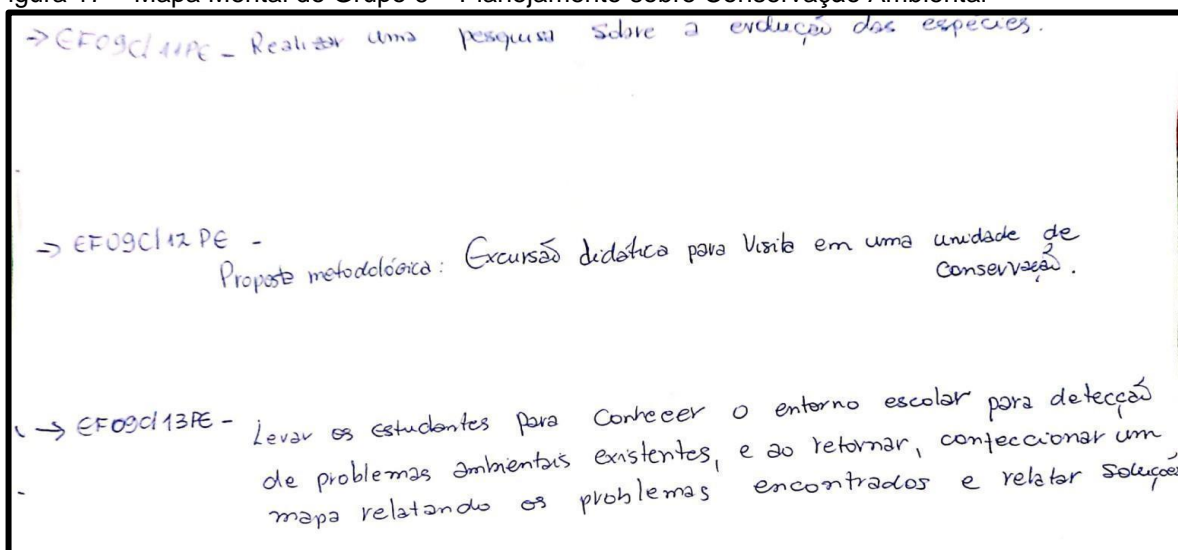 igura 17 – Mapa Mental do Grupo 3 – Planejamento sobre Conservação Ambiental
→ EF09CI11PE - Realizar uma pesquisa sobre a evolução das espécies.
→ EF09CI12PE -
Proposta metodológica: Excursão didática para visita em uma unidade de
conservação.
→ EF09CI13PE - Levar os estudantes para conhecer o entorno escolar para detecção
de problemas ambientais existentes, e ao retornar, confeccionar um
mapa relatando os problemas encontrados e relatar soluções